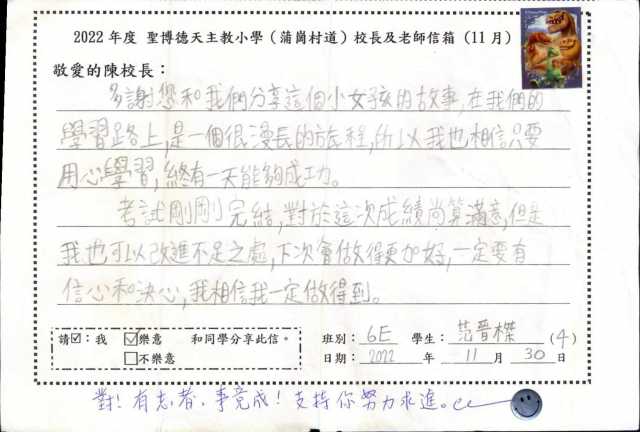 2022 年度 聖博德天主教小學（蒲崗村道）校長及老師信箱（11月）
敬愛的陳校長：
多謝您和我們分享這個小女孩的故事,在我們的
學習路上,是一個很漫長的旅程,所以我也相信只要
用心學習,終有一天能夠成功。
考試剛剛完結,對於這次成績尚算滿意,但是
我也可以改進不足之處,下次會做得更加好,一定要有
信心和決心,我相信我一定做得到。
請☑：我 ☑樂意 和同學分享此信。
□不樂意
班別： 6E 學生： 范晉榤 (4)
日期： 2022 年 11 月 30 日
對! 有志者、事竟成! 支持你努力求進。